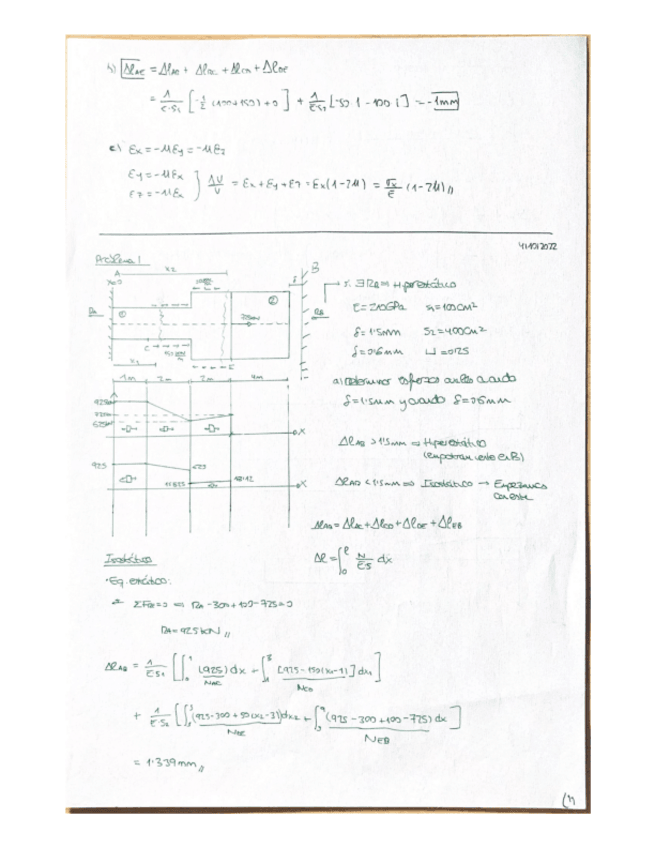 b) ΔlAE = ΔlAB + ΔlBC + ΔlCD + ΔlDE
= 1/E·S1 [-1/2 (100+150) + 0] + 1/E·S2 [-50·1 - 100·1] = -1mm
c) Ex = -μEy = -μEz
Ey = -μEx
Ez = -μEx
ΔV/V = Ex + Ey + Ez = Ex(1-2μ) = σx/E (1-2μ) //
4/10/2022
Problema 1
A
x2
B
RA
①
②
δ
RB
C
E
x1
1m 2m 2m 4m
925
725
625
x
925
625
x
¿∃RB? ⇒ Hiperestático
E = 210GPa S1 = 100cm²
δ = 1'5mm S2 = 400cm²
δ = 0'6mm μ = 0'25
a) Determinar esfuerzos axiles cuando
δ = 1'5mm y cuando δ = 0'6mm
ΔlAB > 1'5mm ⇒ Hiperestático
(empotramiento en B)
ΔlAB < 1'5mm ⇒ Isostático →
ΔlAB = ΔlAC + ΔlCD + ΔlDE + ΔlEB
Δl = ∫₀^l N/ES dx
Isostático
·Eq. estático:
ΣFx = 0 ⇒ RA - 300 + 100 - 725 = 0
RA = 925 kN //
ΔlAB = 1/ES1 [∫₀¹ (925) dx + ∫₁³ [925 - 150(x1-1)] dx1]
NAC
NCD
+ 1/ES2 [∫₃⁵ (925 - 300 + 50(x2-3)) dx2 + ∫₅⁹ (925 - 300 + 100 - 725) dx]
NDE
NEB
= 1'339mm //